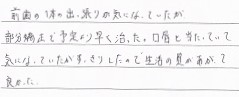 前歯の1本の出っ張りが気になっていたが
部分矯正で予定より早く治った。口唇と当たっていて
気になっていたがすっきりしたので生活の質があがって
良かった。